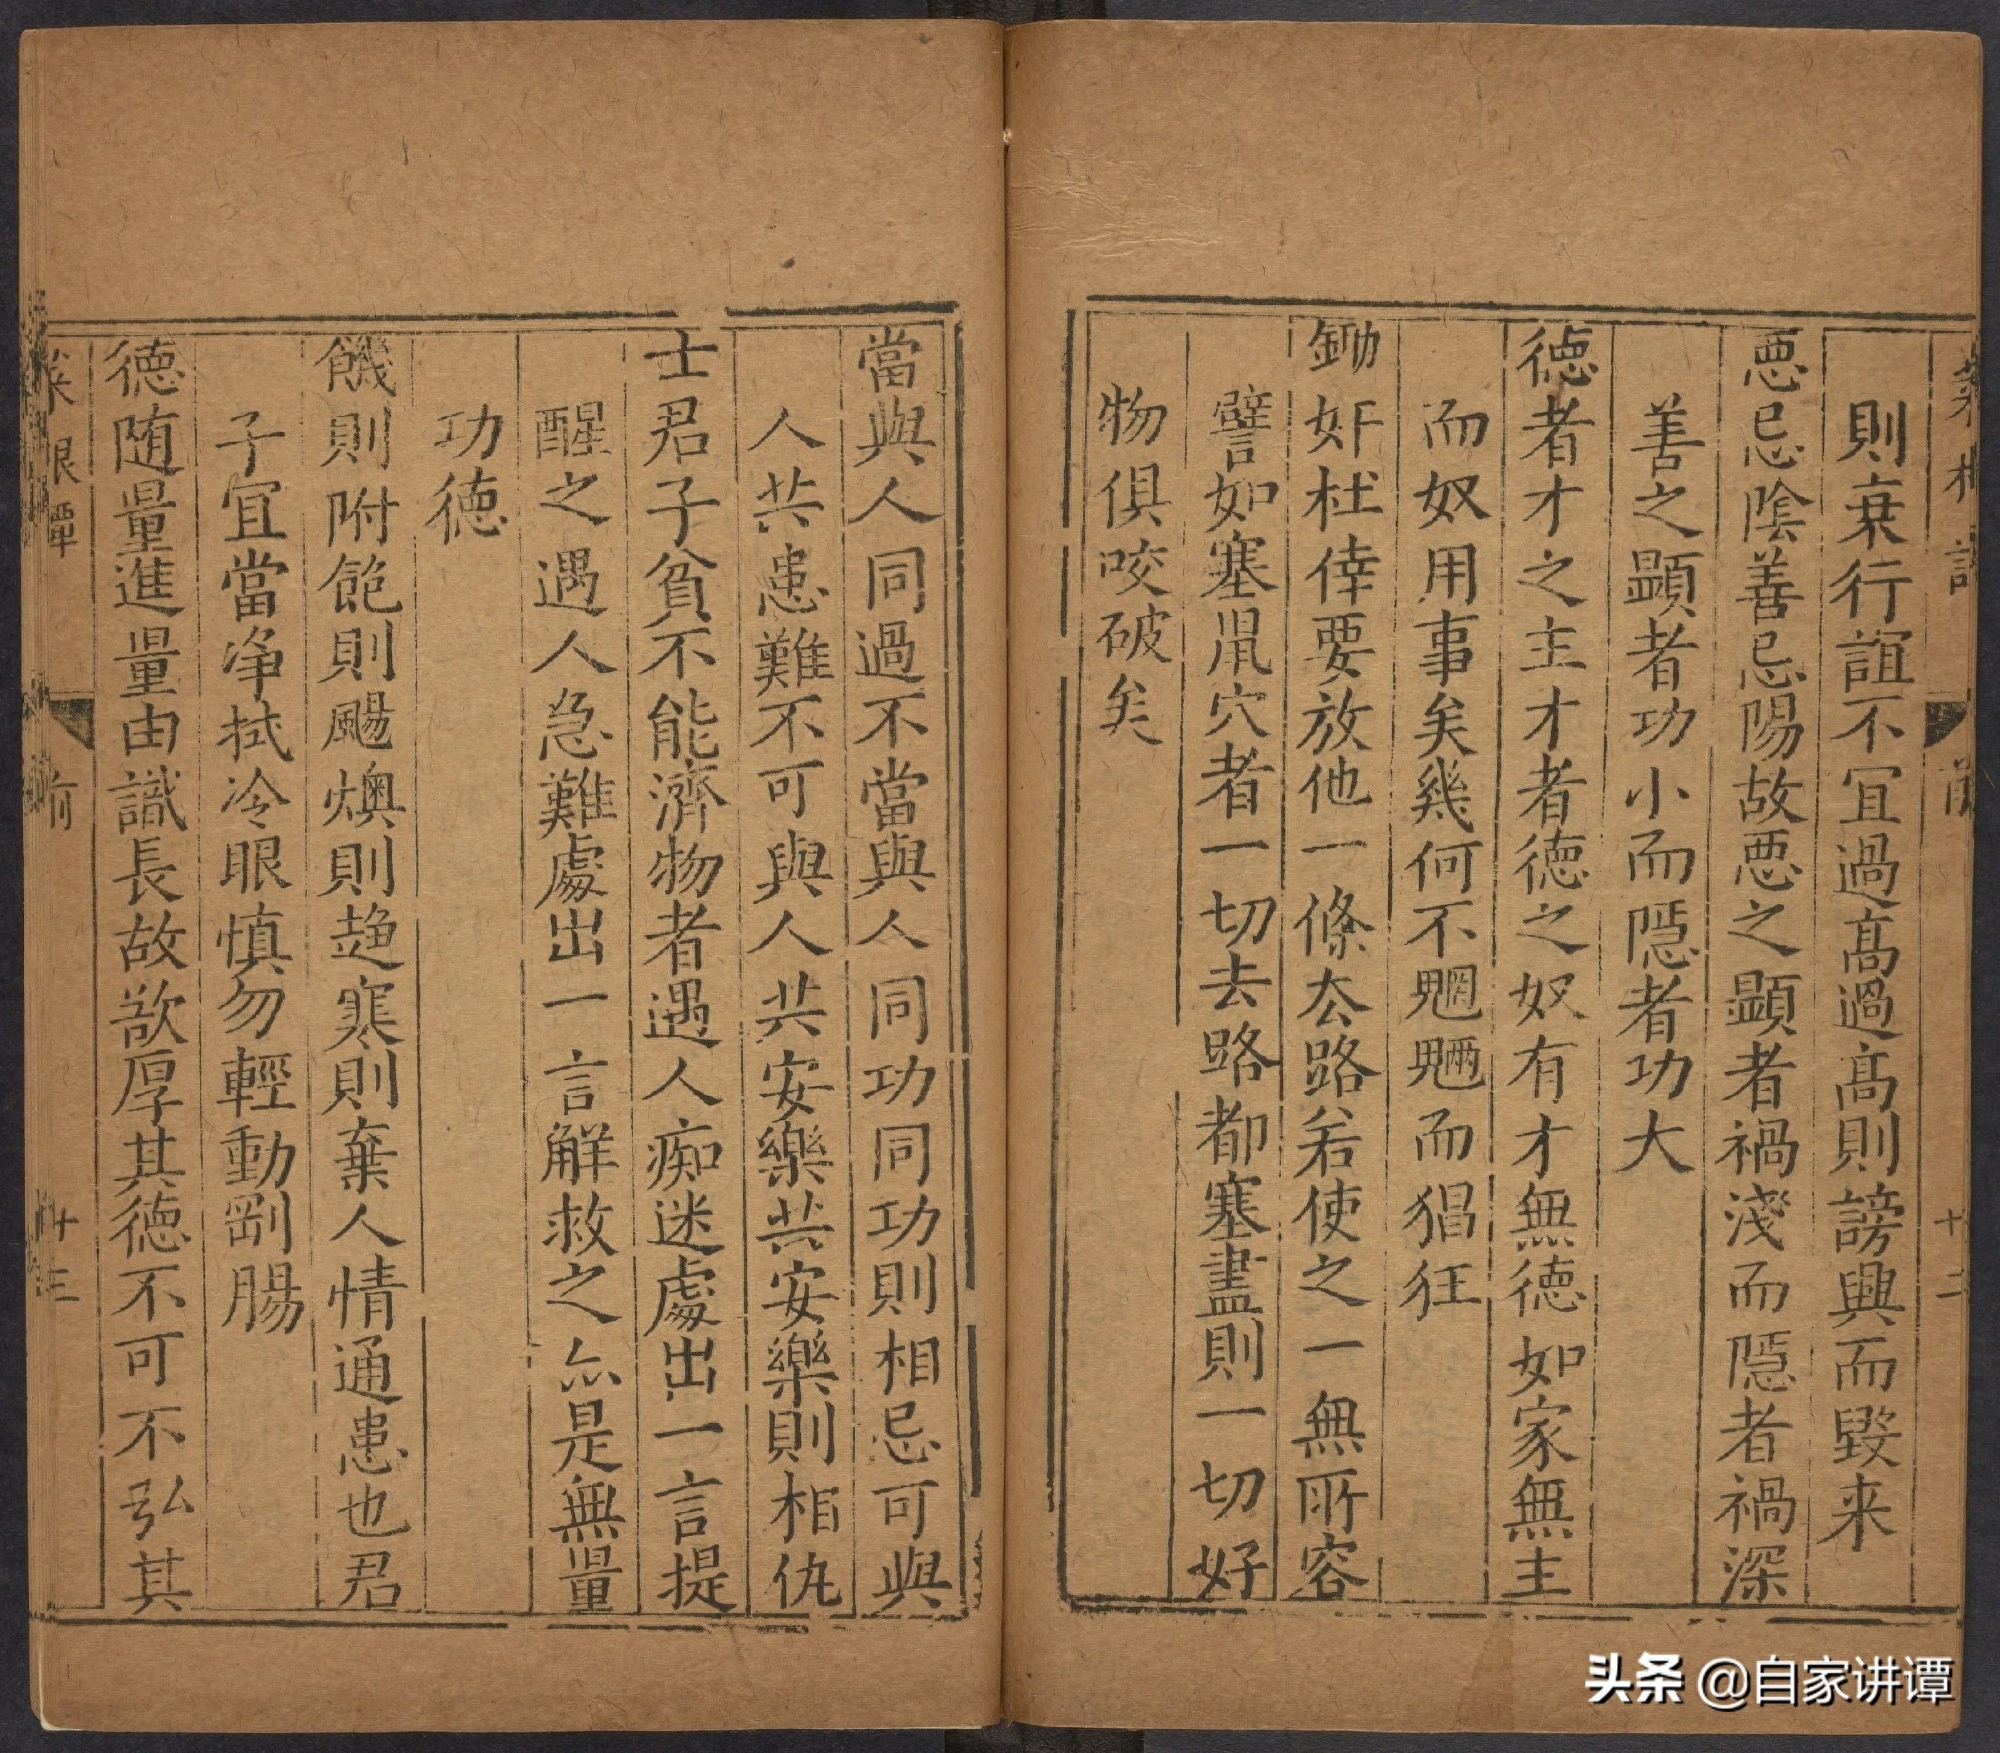 則棄行誼不宜過髙過髙則謗興而毀来
惡忌陰善忌陽故惡之顯者禍淺而隱者禍深
善之顯者功小而隱者功大
德者才之主才者德之奴有才無德如家無主
而奴用事矣幾何不魍魎而猖狂
鋤奸杜倖要放他一條去路若使之一無所容
譬如塞鼠穴者一切去路都塞盡則一切好
物俱咬破矣
十二
當與人同過不當與人同功同功則相忌可與
人共患難不可與人共安樂共安樂則相仇
士君子貧不能濟物者遇人痴迷處出一言提
醒之遇人急難處出一言解救之亦是無量
功德
饑則附飽則颺燠則趨寒則棄人情通患也君
子宜當净拭冷眼慎勿輕動剛腸
德随量進量由識長故欲厚其德不可不弘其
菜根譚
前
十三
头条 @自家讲谭